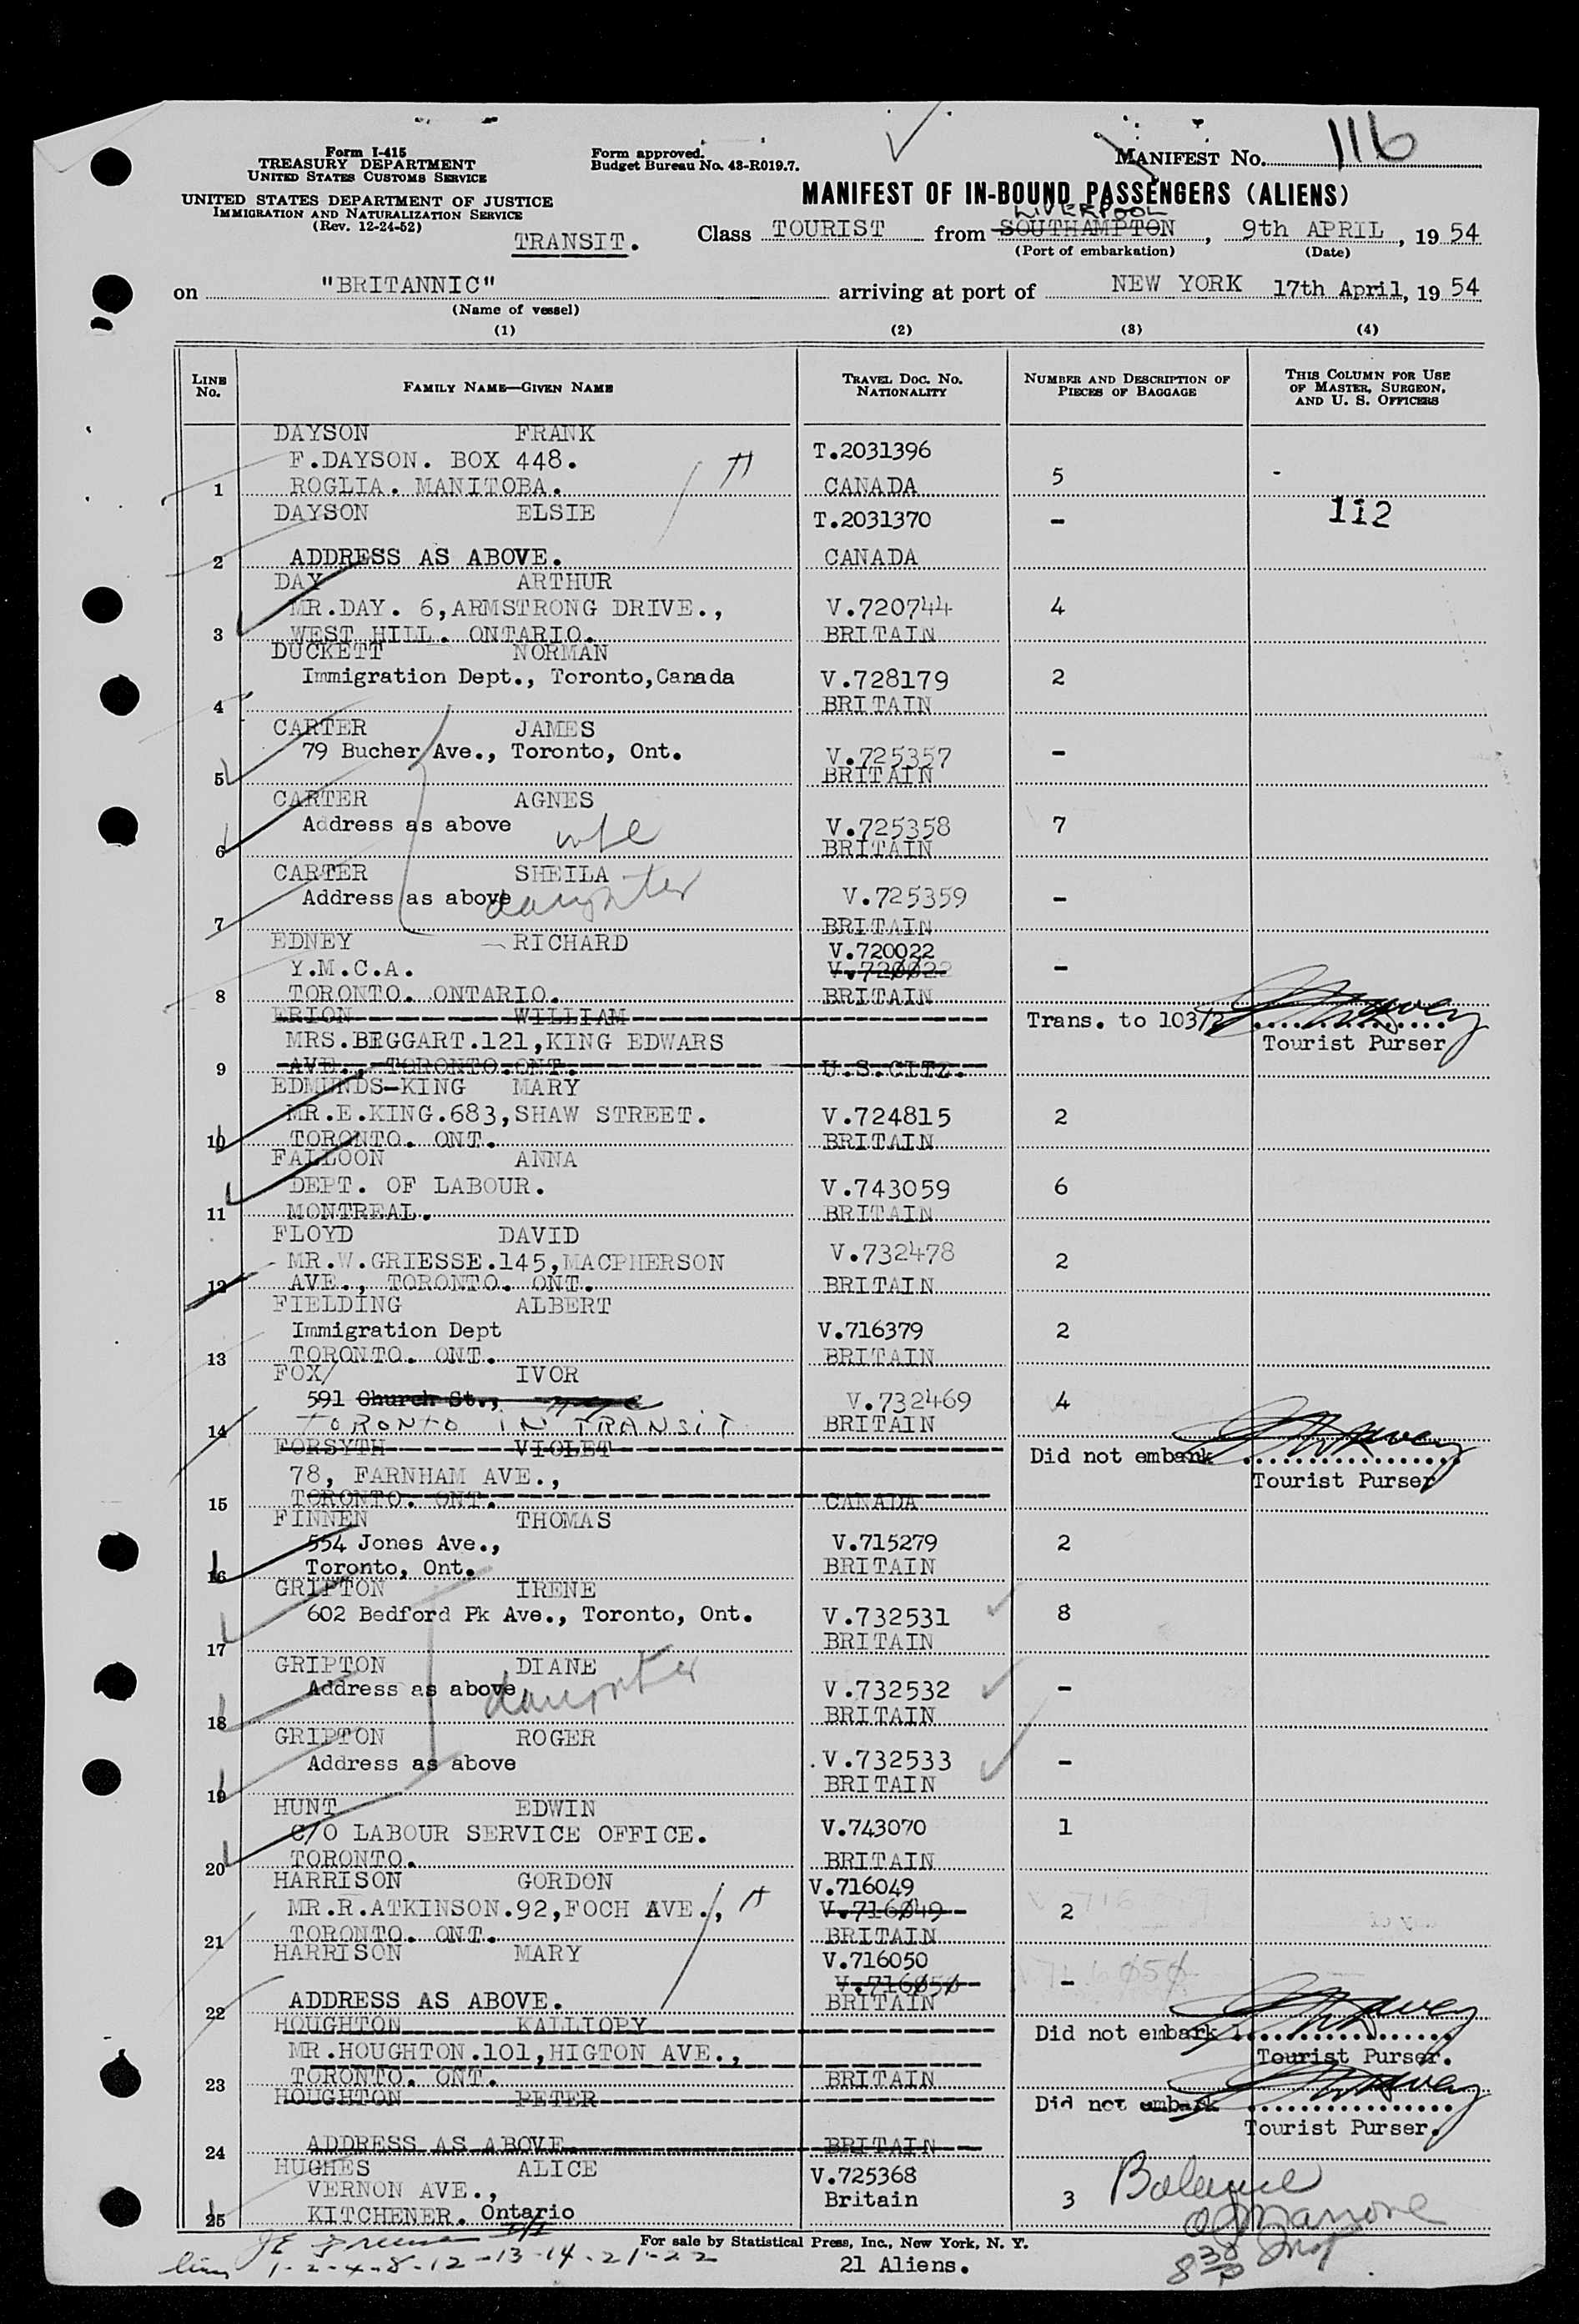 Form I-415
TREASURY DEPARTMENT
UNITED STATES CUSTOMS SERVICE
UNITED STATES DEPARTMENT OF JUSTICE
IMMIGRATION AND NATURALIZATION SERVICE
(Rev. 12-24-52)
TRANSIT.
Form approved.
Budget Bureau No. 43-R019.7.
MANIFEST No. 116
MANIFEST OF IN-BOUND PASSENGERS (ALIENS)
LIVERPOOL
Class TOURIST from SOUTHAMPTON, 9th APRIL, 19 54
(Port of embarkation) (Date)
on "BRITANNIC" arriving at port of NEW YORK 17th April, 19 54
(Name of vessel)
(1) (2) (3) (4)
LINE No. FAMILY NAME—GIVEN NAME TRAVEL DOC. No. NATIONALITY NUMBER AND DESCRIPTION OF PIECES OF BAGGAGE THIS COLUMN FOR USE OF MASTER, SURGEON, AND U. S. OFFICERS
DAYSON FRANK
F.DAYSON. BOX 448. T.2031396
1 ROGLIA. MANITOBA. CANADA 5 -
DAYSON ELSIE T.2031370 - 112
2 ADDRESS AS ABOVE. CANADA
DAY ARTHUR
MR.DAY. 6,ARMSTRONG DRIVE., V.720744 4
3 WEST HILL. ONTARIO. BRITAIN
DUCKETT NORMAN
Immigration Dept., Toronto,Canada V.728179 2
4 BRITAIN
CARTER JAMES
79 Bucher Ave., Toronto, Ont. V.725357 -
5 BRITAIN
CARTER AGNES
Address as above wife V.725358 7
6 BRITAIN
CARTER SHEILA
Address as above daughter V.725359 -
7 BRITAIN
EDNEY RICHARD V.720022
Y.M.C.A. V.720022 -
8 TORONTO. ONTARIO. BRITAIN
ERION WILLIAM Trans. to 103/2
MRS.BEGGART.121,KING EDWARS Tourist Purser
9 AVE., TORONTO.ONT. U.S.CITZ.
EDMUNDS-KING MARY
MR.E.KING.683,SHAW STREET. V.724815 2
10 TORONTO. ONT. BRITAIN
FALLOON ANNA
DEPT. OF LABOUR. V.743059 6
11 MONTREAL. BRITAIN
FLOYD DAVID
MR.W.GRIESSE.145,MACPHERSON V.732478 2
12 AVE., TORONTO. ONT. BRITAIN
FIELDING ALBERT
Immigration Dept V.716379 2
13 TORONTO. ONT. BRITAIN
FOX/ IVOR
591 Church St., V.732469 4
14 TORONTO IN TRANSIT BRITAIN
FORSYTH VIOLET Did not embark
78, FARNHAM AVE., Tourist Purser
15 TORONTO. ONT. CANADA
FINNEN THOMAS
554 Jones Ave., V.715279 2
16 Toronto, Ont. BRITAIN
GRIPTON IRENE
602 Bedford Pk Ave., Toronto, Ont. V.732531 8
17 BRITAIN
GRIPTON DIANE
Address as above daughter V.732532 -
18 BRITAIN
GRIPTON ROGER
Address as above V.732533 -
19 BRITAIN
HUNT EDWIN
C/O LABOUR SERVICE OFFICE. V.743070 1
20 TORONTO. BRITAIN
HARRISON GORDON V.716049
MR.R.ATKINSON.92,FOCH AVE., V.716049 2
21 TORONTO. ONT. BRITAIN
HARRISON MARY V.716050
V.716050 -
22 ADDRESS AS ABOVE. BRITAIN
HOUGHTON KALLIOPY Did not embark
MR.HOUGHTON.101,HIGTON AVE., Tourist Purser.
23 TORONTO. ONT. BRITAIN
HOUGHTON PETER Did not embark
Tourist Purser.
24 ADDRESS AS ABOVE BRITAIN
HUGHES ALICE V.725368
VERNON AVE., Britain 3 Balance
25 KITCHENER. Ontario
For sale by Statistical Press, Inc., New York, N. Y.
line 1-2-4-8-12-13-14-21-22
21 Aliens.